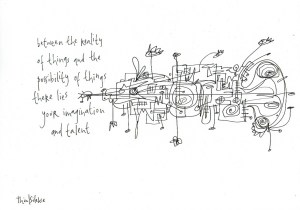 between the reality
of things and the
possibility of things
there lies
your imagination
and talent